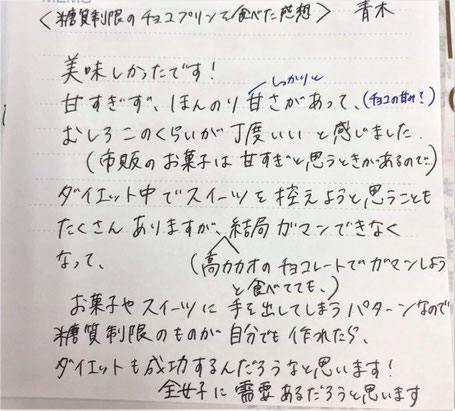 〈糖質制限のチョコプリンを食べた感想〉 青木
美味しかったです!
しっかりと
甘すぎず、ほんのり甘さがあって、(チョコの甘み?)
むしろこのくらいが丁度いいと感じました.
(市販のお菓子は甘すぎと思うときがあるので)
ダイエット中でスイーツを控えようと思うことも
たくさんありますが、結局ガマンできなく
なって、(高カカオのチョコレートでガマンしよう
と食べてても、)
お菓子やスイーツに手を出してしまうパターンなので
糖質制限のものが自分でも作れたら、
ダイエットも成功するんだろうなと思います!
全女子に需要あるだろうと思います